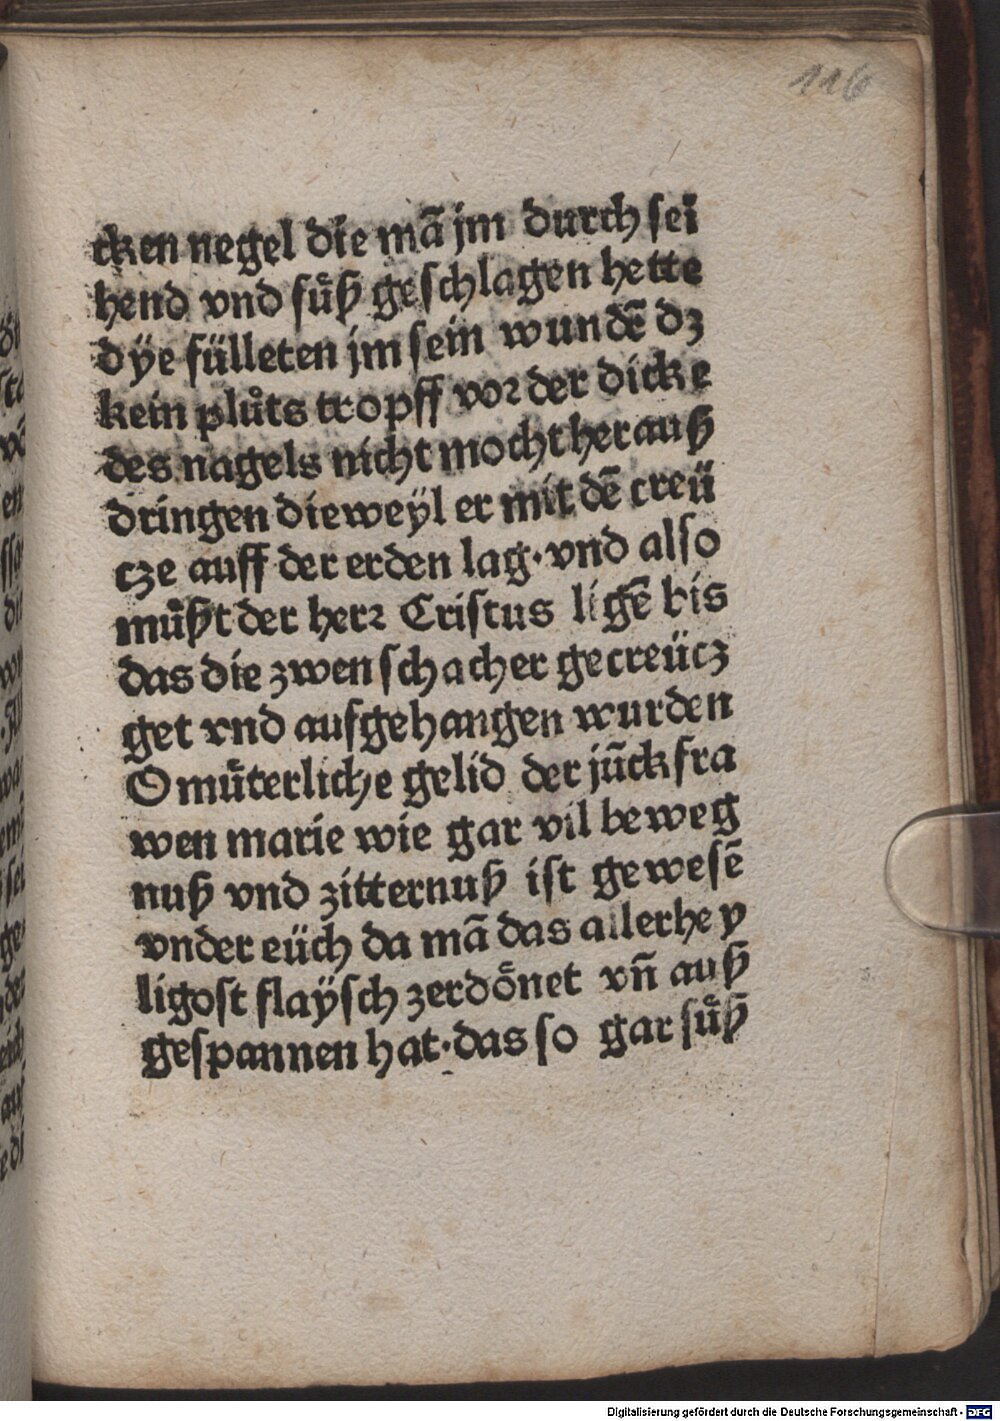 116
cken negel die mā jm durch sei
hend vnd fuͤß geschlagen hette
dÿe fülleten jm sein wundē dz
kein pluͦts tropff vor der dicke
des nagels nicht mocht herauß
dringen dieweÿl er mit dē creü
cze auff der erden lag·vnd also
muͤßt der herr Cristus ligē bis
das die zwen schacher gecreücz
get vnd aufgehangen wurden
O muͤterliche gelid der jūckfra
wen marie wie gar vil beweg
nuß vnd zitternuß ist gewesē
vnder eüch da mā das allerhey
ligost flaÿsch zerdoͤnet vn̄ auß
gespannen hat·das so gar suͤß
Digitalisierung gefördert durch die Deutsche Forschungsgemeinschaft - DFG